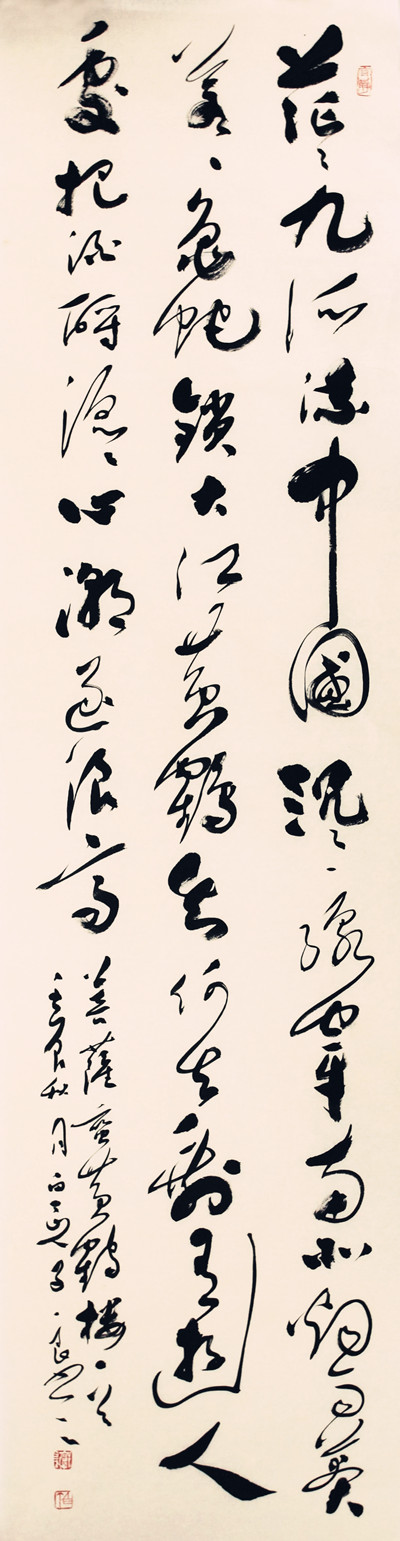 茫々九派流中國沉々一線穿南北烟雨莽
蒼々龜蛇鎖大江黄鶴知何去剩有遊人
處把酒酹滔々心潮逐浪高
菩薩蛮黄鶴楼
秋月